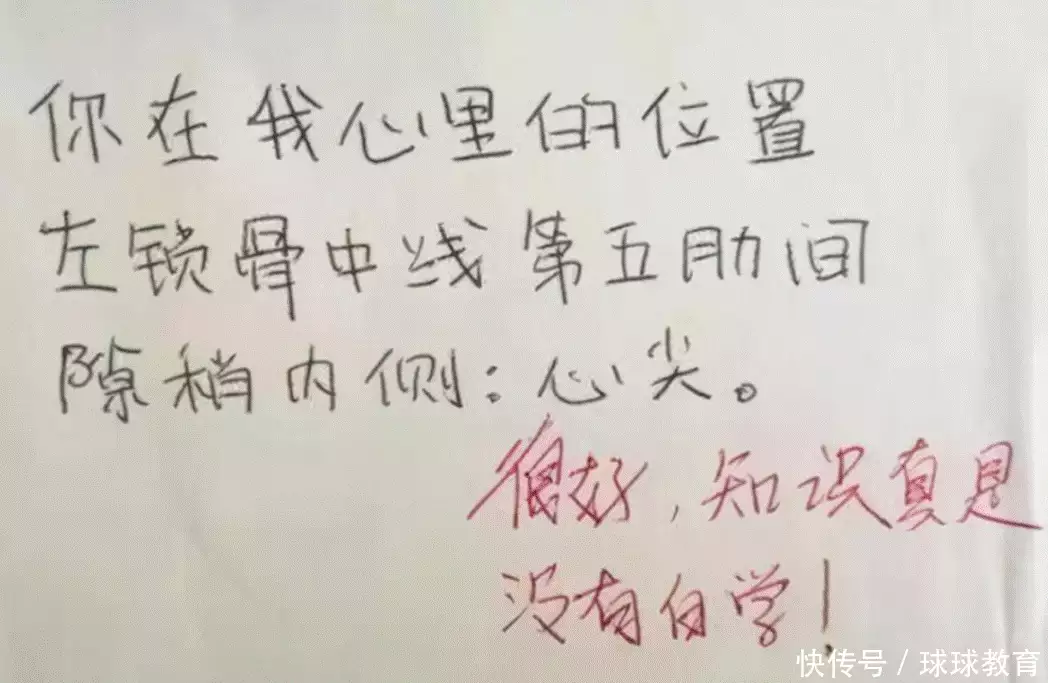 你在我心里的位置
左锁骨中线第五肋间
隙稍内侧:心尖。
很好,知识真是
没有白学!
快传号 / 球球教育